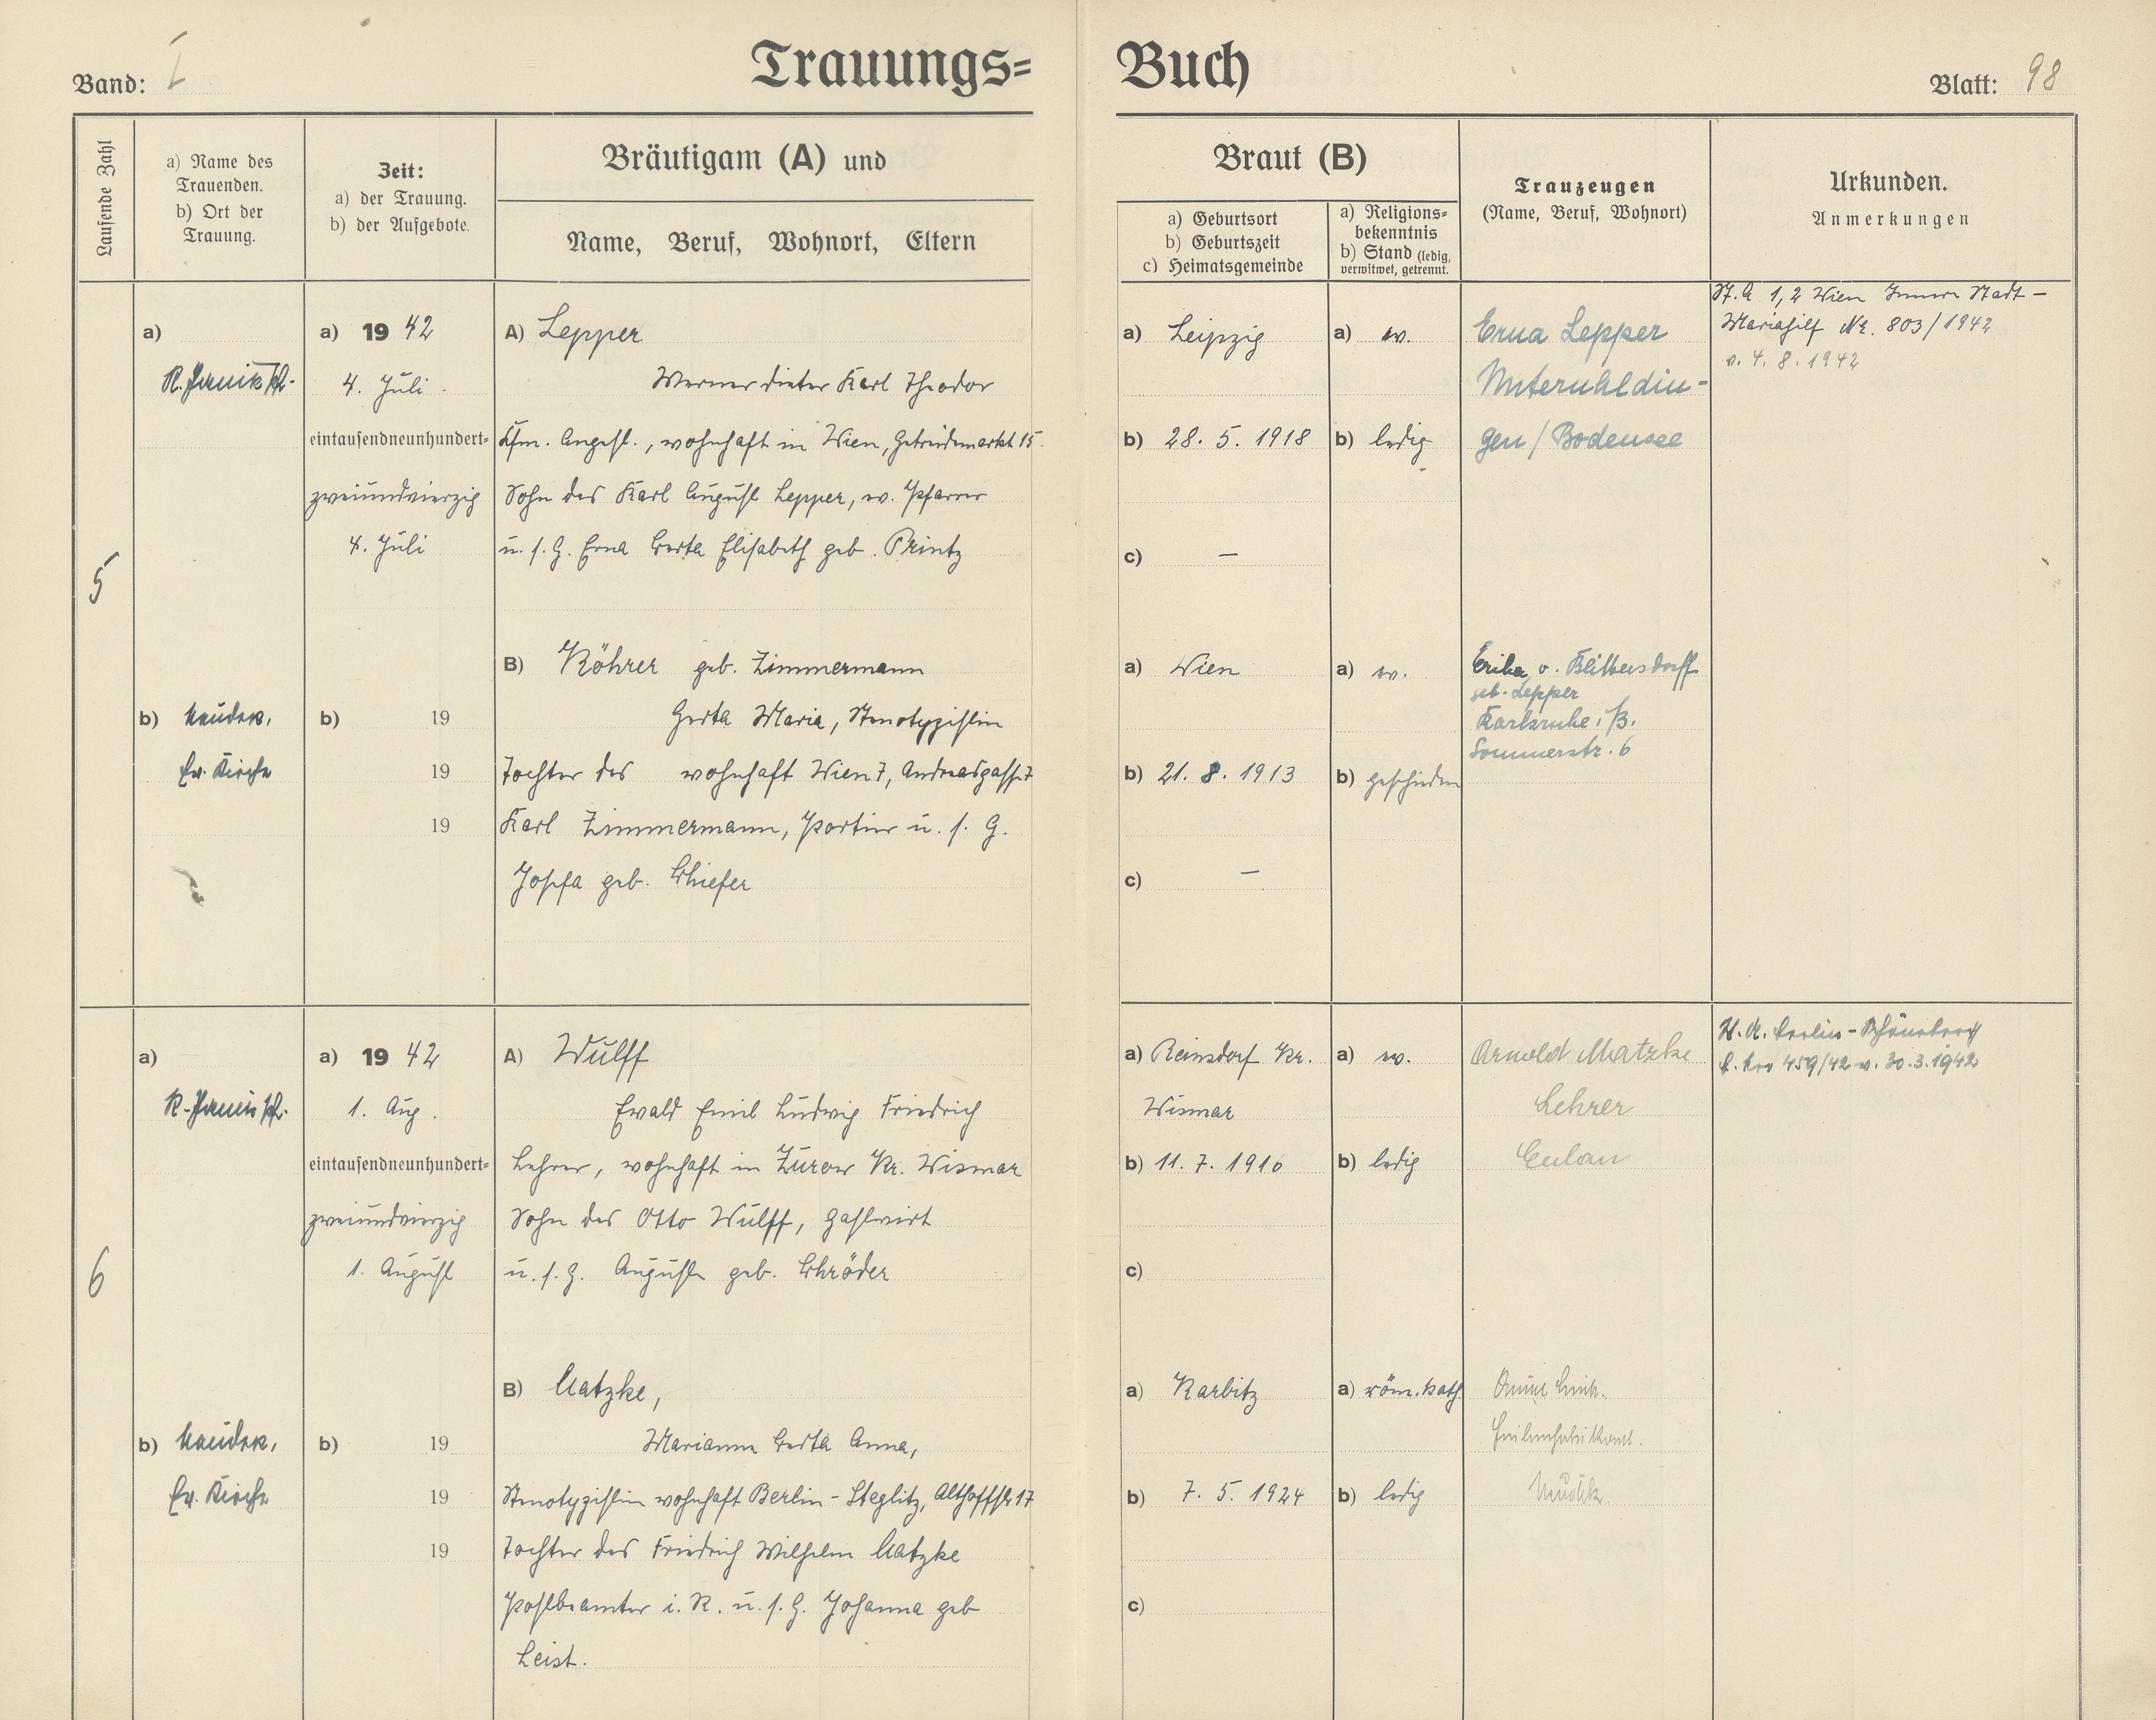 Band: I
Trauungs=Buch
Blatt: 98
Laufende Zahl
a) Name des
Trauenden.
b) Ort der
Trauung.
Zeit:
a) der Trauung.
b) der Aufgebote.
Bräutigam (A) und
Name, Beruf, Wohnort, Eltern
Braut (B)
a) Geburtsort
b) Geburtszeit
c) Heimatsgemeinde
a) Religions=
bekenntnis
b) Stand (ledig,
verwitwet, getrennt.
Trauzeugen
(Name, Beruf, Wohnort)
Urkunden.
Anmerkungen
5
a)
b)
Ev. Kirche
a) 1942
4. Juli
eintausendneunhundert=
zweiundvierzig
4. Juli
b) 19
19
19
A) Lepper
Werner Dieter Karl Theodor
Kfm. Angest., wohnhaft in Wien, Getreidemarkt 15.
Sohn des Karl August Lepper, ev. Pfarrer
u. s. G. Erna Berta Elisabeth geb. Printz
B) Röhrer geb. Zimmermann
Gerta Maria, Stenotypistin
Tochter des wohnhaft Wien 7, Andreasgasse 7
Karl Zimmermann, Portier u. s. G.
Josefa geb. Schiefer
a) Leipzig
b) 28. 5. 1918
c) —
a) ev.
b) ledig
Erna Lepper
Unteruhldin-
gen / Bodensee
St. A 1,2 Wien Innere Stadt -
Mariahilf Nr. 803/1942
v. 4. 8. 1942
a) Wien
b) 21. 8. 1913
c) —
a) ev.
b) geschieden
Erika v.
geb. Lepper
Karlsruhe i/B.
Sommerstr. 6
6
a)
b)
Ev. Kirche
a) 1942
1. Aug.
eintausendneunhundert=
zweiundvierzig
1. August
b) 19
19
19
A) Wulff
Ewald Emil Ludwig Friedrich
Lehrer, wohnhaft in Zurow Kr. Wismar
Sohn des Otto Wulff, Gastwirt
u. s. G. Auguste geb. Schröder
B) Matzke,
Marianne Berta Anna,
Stenotypistin wohnhaft Berlin-Steglitz, Althoffstr 17
Tochter des Friedrich Wilhelm Matzke
Postbeamter i. R. u. s. G. Johanna geb
Leist.
a) Reinsdorf Kr.
Wismar
b) 11. 7. 1916
c)
a) ev.
b) ledig
Arnold Matzke
Lehrer
Eulau
Berlin-Schöneberg
459/42 v. 30.3.1942
a) Karbitz
b) 7. 5. 1924
c)
a) röm. kath.
b) ledig